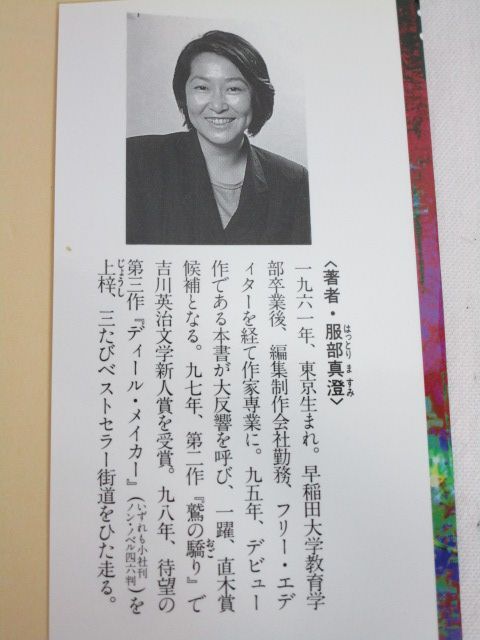 〈著者・服部真澄〉
はっとりますみ
一九六一年、東京生まれ。早稲田大学教育学
部卒業後、編集制作会社勤務、フリー・エデ
ィターを経て作家専業に。九五年、デビュー
作である本書が大反響を呼び、一躍、直木賞
候補となる。九七年、第二作『鷲の驕り』で
おご
吉川英治文学新人賞を受賞。九八年、待望の
第三作『ディール・メイカー』(いずれも小社刊ノン・ノベル四六判)を
上梓、三たびベストセラー街道をひた走る。
じょうし